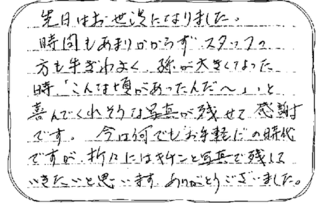 先日はお世話になりました。
時間もあまりかからず スタッフの
方も手ぎわよく 孫が大きくなった
時、「こんな頃があったんだ〜」と
喜んでくれそうな写真が残せて 感謝
です。 今は何でもお手軽にの時代
ですが、折々にはキチンと写真で残して
いきたいと思います。ありがとうございました。